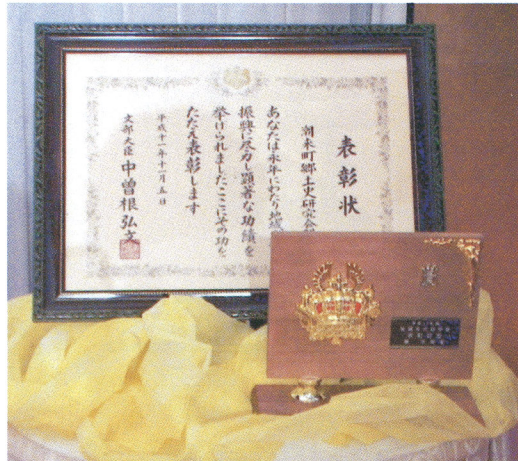 表彰状
潮来町郷土史研究会
あなたは永年にわたり地域
振興に尽力し顕著な功績を
挙げられましたここにその功を
たたえ表彰します
平成十一年十一月五日
文部大臣 中曽根弘文
賞